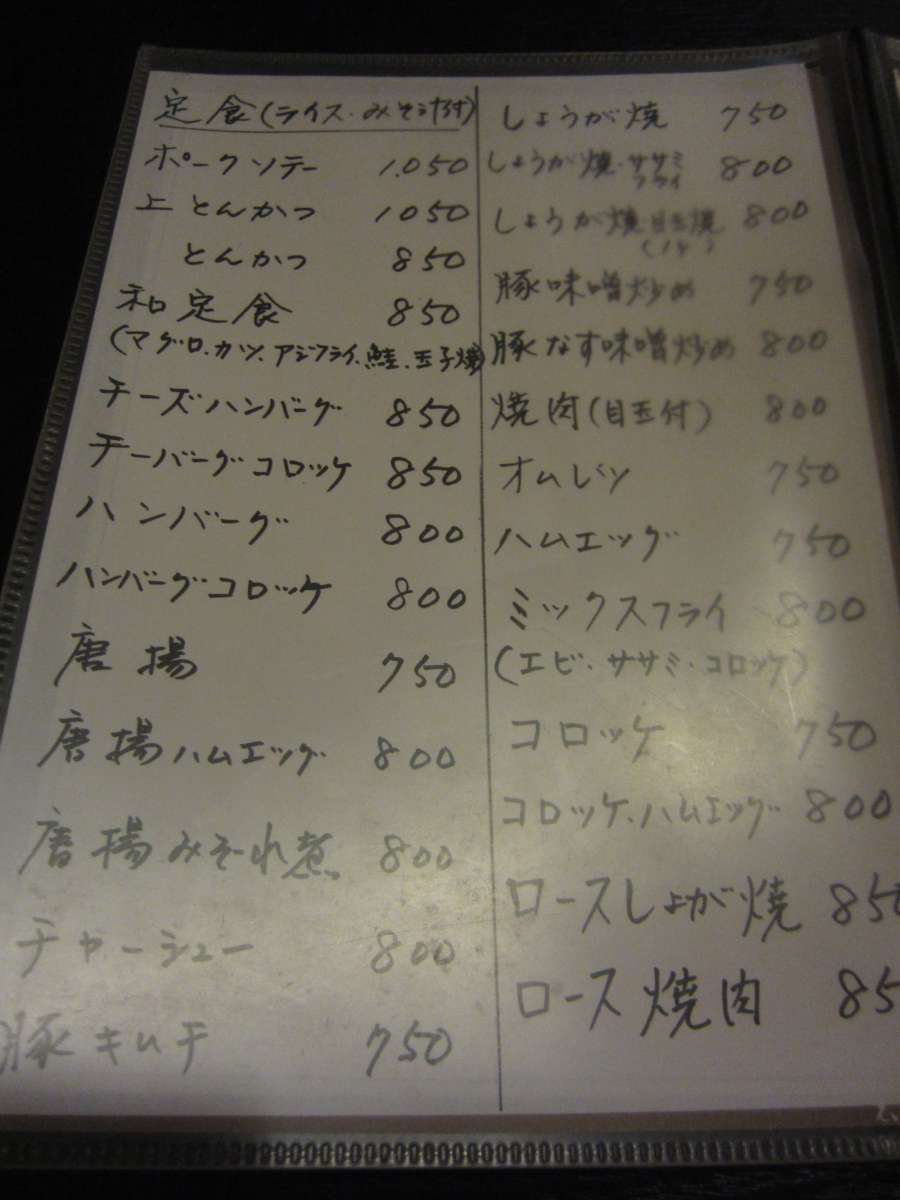 定食(ライス・みそ汁付)
ポークソテー 1.050
上とんかつ 1050
とんかつ 850
和定食 850
(マグロ、カツ、アジフライ、鮭、玉子焼)
チーズハンバーグ 850
チーバーグコロッケ 850
ハンバーグ 800
ハンバーグ・コロッケ 800
唐揚 750
唐揚ハムエッグ 800
唐揚みぞれ煮 800
チャーシュー 800
豚キムチ 750
しょうが焼 750
しょうが焼・ササミフライ 800
しょうが焼目玉焼 800
豚味噌炒め 750
豚なす味噌炒め 800
焼肉(目玉付) 800
オムレツ 750
ハムエッグ 750
ミックスフライ 800
(エビ・ササミ・コロッケ)
コロッケ 750
コロッケ、ハムエッグ 800
ロースしょが焼 850
ロース焼肉 85